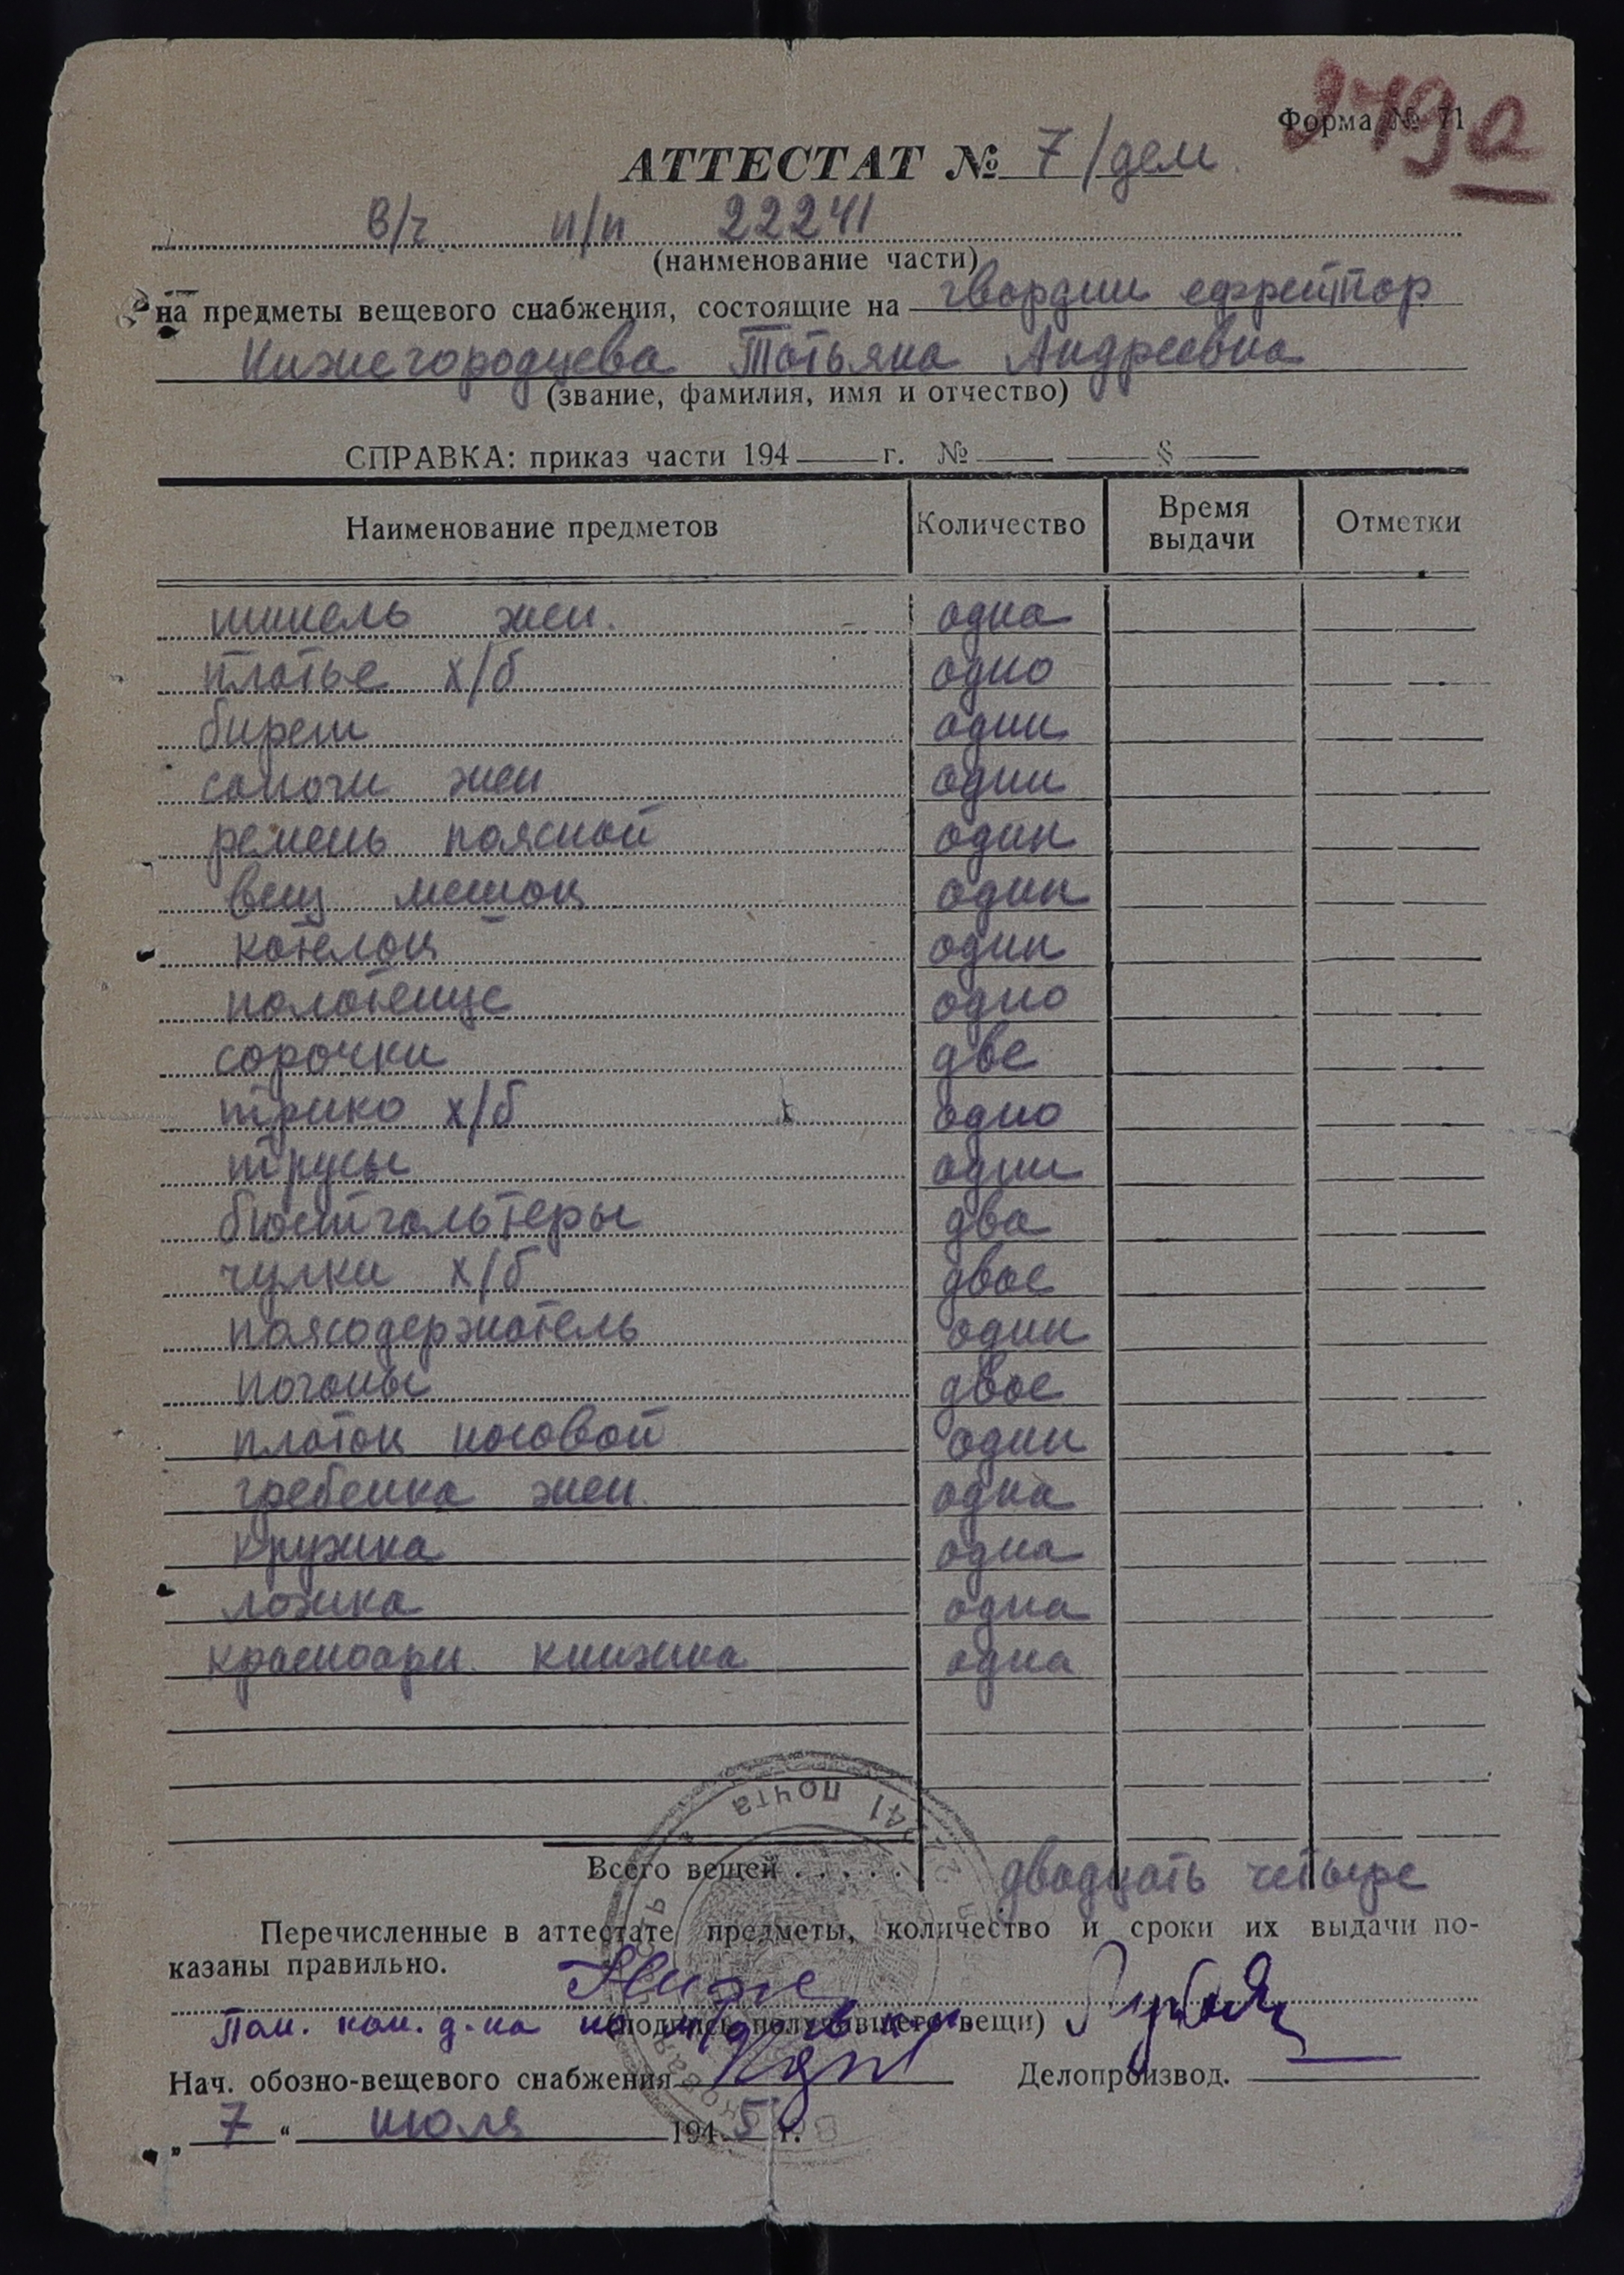 279а
Форма № 71
АТТЕСТАТ № 7/дем.
в/ч п/п 22241
(наименование части)
на предметы вещевого снабжения, состоящие на гвардии ефрейтор
Нижегородцева Татьяна Андреевна
(звание, фамилия, имя и отчество)
СПРАВКА: приказ части 194 г. № §
Наименование предметов Количество Время выдачи Отметки
шинель жен. одна
платье х/б одно
бирет один
сапоги жен одни
ремень поясной один
вещ мешок один
котелок один
полотенце одно
сорочки две
трико х/б одно
трусы одни
бюстгальтеры два
чулки х/б двое
поясодержатель один
погоны двое
платок носовой один
гребенка жен. одна
кружка одна
ложка одна
красноарм. книжка одна
Всего вещей ..... двадцать четыре
Перечисленные в аттестате предметы, количество и сроки их выдачи по-
казаны правильно.
Ниже
(подпись получившего вещи)
Пом. ком. д-на по
Нач. обозно-вещевого снабжения Делопроизвод.
„ 7 “ июля 1945 г.
почта